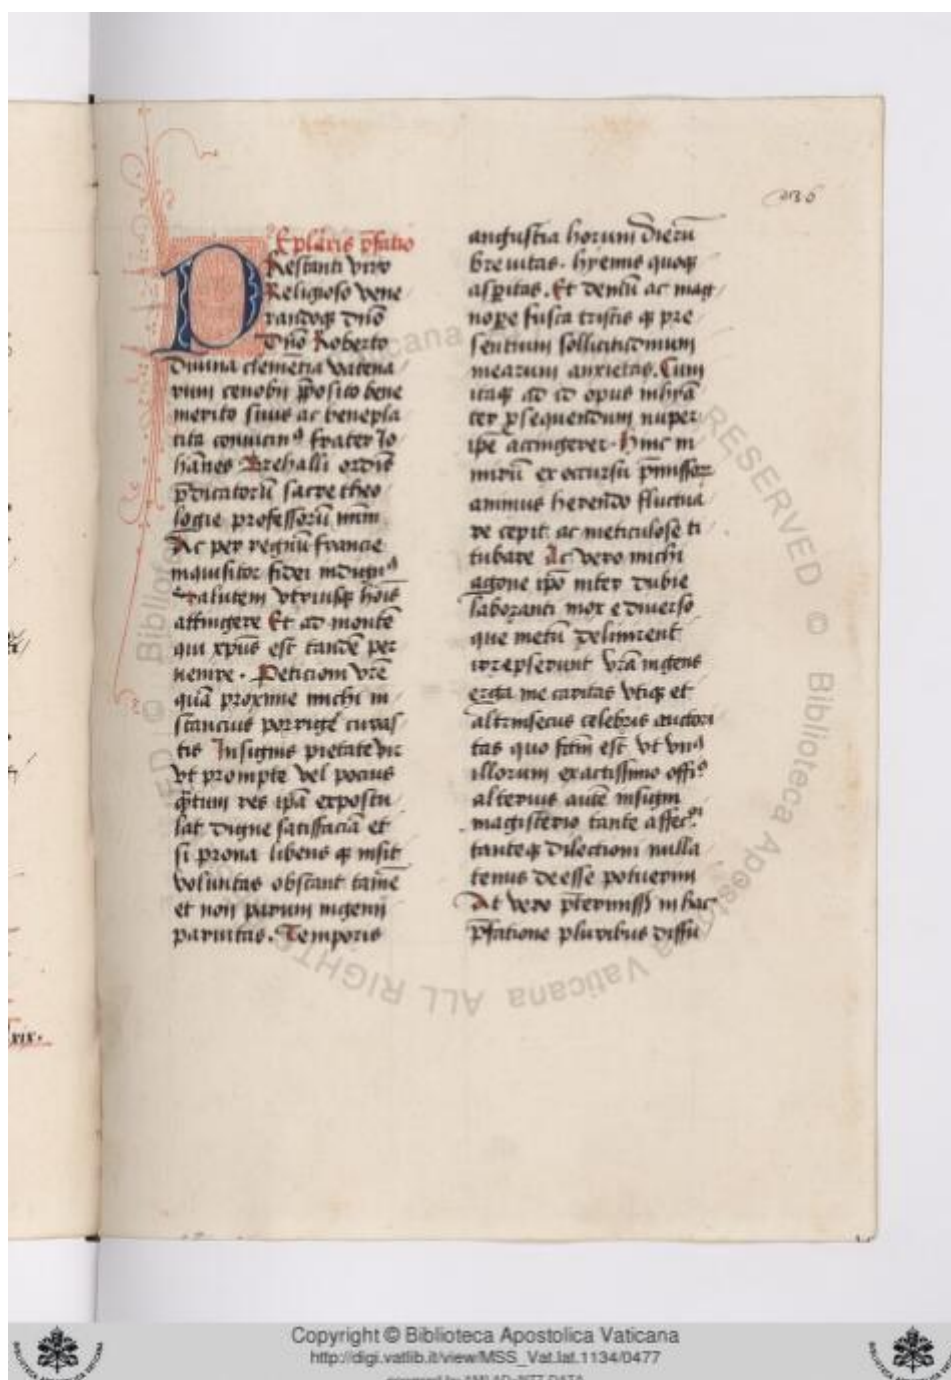 236
Ep̄laris p̄fatio
PRestanti viro
Religioso vene
randoq₃ dn̄o
Dn̄o Roberto
Diuina clemētia vatena
rum cenobii p̄posito bene
merito suus ac benepla
cita conuictꝰ frater Jo
hānes Brehalli ordīs
p̄dicatorū sacre theo
logie professorū mīm
Ac per regnū francie
inquisitor fidei indignꝰ
Salutem vtriusq₃ hoīs
attingere Et ad montē
qui xp̄us est tandē per
uenire. Peticioni vr̄e
quā proxime michi in
stancius porrige᷑ curas
tis Insignis pietate vir
vt prompte vel pocius
q̄tum res ip̄a expostu
lat digne satisfaciā et
si prona libens q₃ insit
voluntas obstant tamē
et non parum ingenij
paruitas. Temporis
angustia horum dierū
breuitas. hyemis quoq₃
asꝑitas. Et demū ac mag
noꝑe fusca tristis q₃ pre
sentium sollicitudinum
mearum anxietas. Cum
itaq₃ ad id opus inhyā
ter ꝑsequendum nuper
ip̄e accingerer. Hinc ni
mirū ex occursū p̄missoꝝ
animus herendo fluctua
re cepit ac meticulose ti
tubare Ac vero michi
agone ip̄o inter dubie
laboranti mox e diuerso
que metū delinirent
irrepserunt vr̄a ingens
erga me caritas vtiq₃ et
altrinsecus celebris auctori
tas quo fc̄m est vt vniꝰ
illorum exactissimo offiº
alterius autē insigni
magisterio tante affecºⁱ
tanteq₃ dilectioni nulla
tenus deesse potuerim
At vero p̄termiss̄ in hac
p̄fatione pluribus diffu
xix.
Copyright © Biblioteca Apostolica Vaticana
http://digi.vatlib.it/view/MSS_Vat.lat.1134/0477